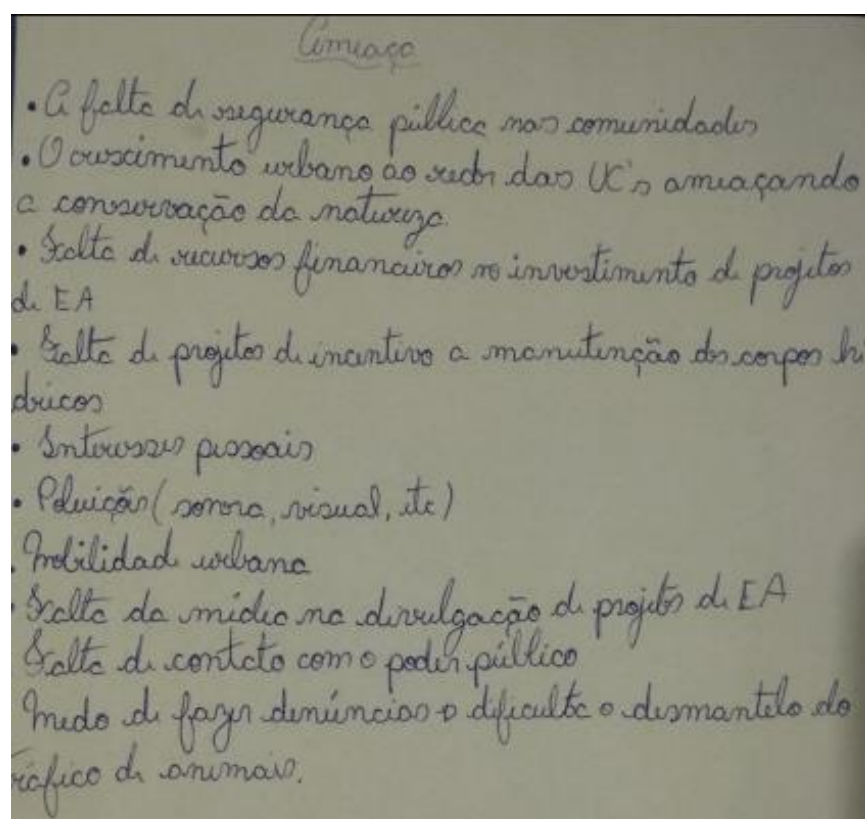 Ameaça
• A falta de segurança pública nas comunidades
• O crescimento urbano ao redor das UC's ameaçando
a conservação da natureza.
• Falta de recursos financeiros no investimento de projetos
de EA
• Falta de projetos de incentivo a manutenção dos corpos hí
dricos
• Interesses pessoais
• Poluição (sonora, visual, etc)
. Mobilidade urbana
• Falta da mídia na divulgação de projetos de EA
Falta de contato com o poder público
Medo de fazer denúncias o dificulta o desmantelo do
tráfico de animais.